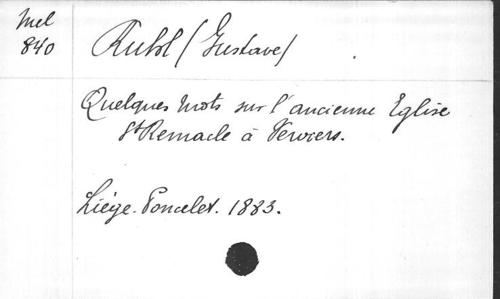 Mel
840
Ruhl (Gustave)
Quelques mots sur l'ancienne Eglise
St Remacle à Verviers.
Liége. Poncelet. 1883.